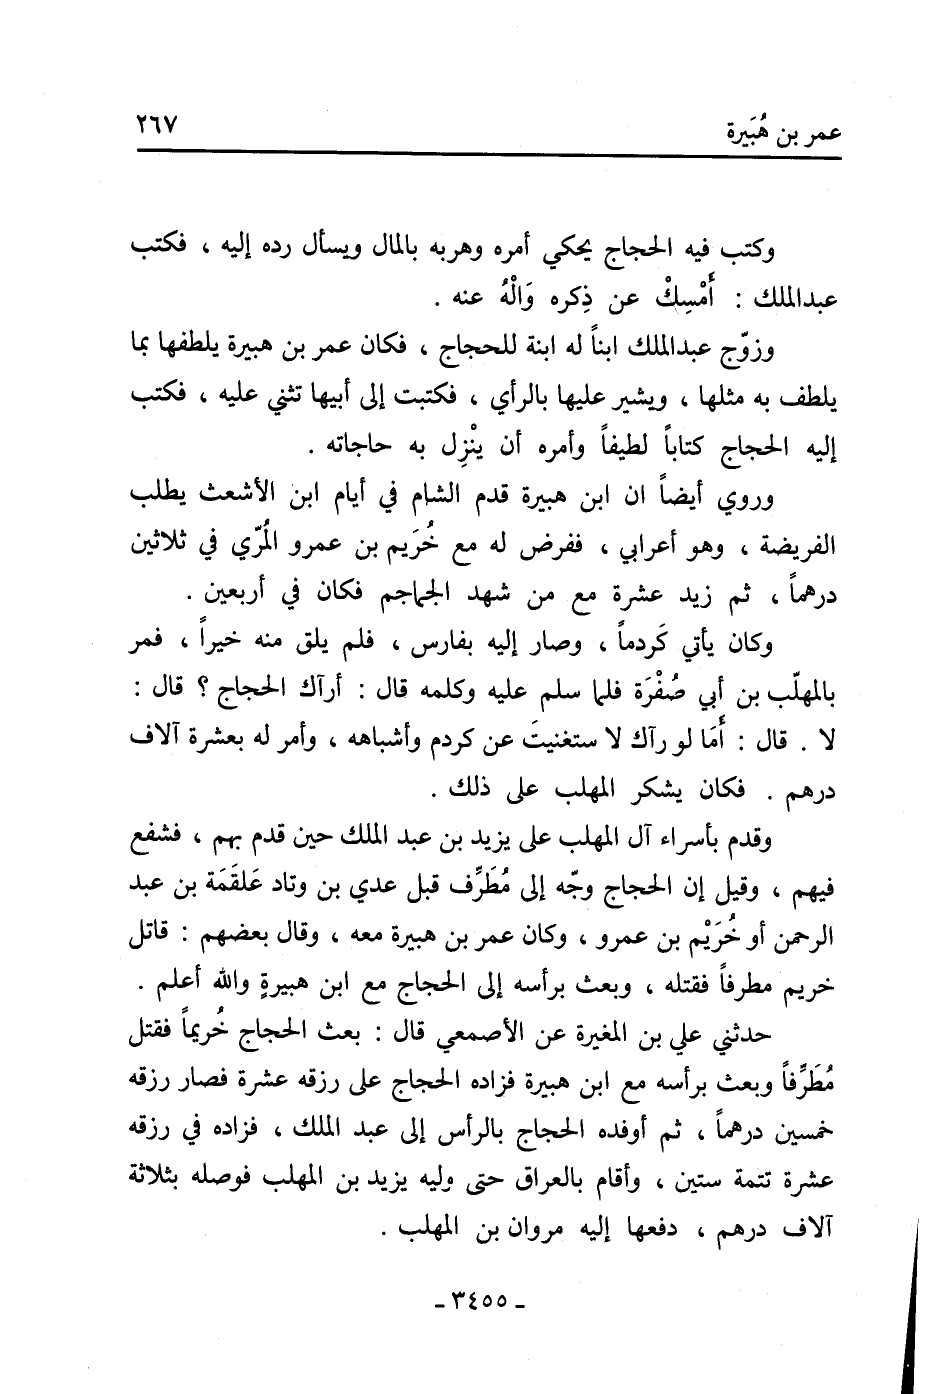 عمر بن هُبَيرة ٢٦٧
وكتب فيه الحجاج يحكي أمره وهربه بالمال ويسأل رده إليه ، فكتب
عبدالملك : أَمْسِكْ عن ذِكره وَالْهُ عنه .
وزوّج عبدالملك ابناً له ابنة للحجاج ، فكان عمر بن هبيرة يلطفها بما
يلطف به مثلها ، ويشير عليها بالرأي ، فكتبت إلى أبيها تثني عليه ، فكتب
إليه الحجاج كتاباً لطيفاً وأمره أن ينْزِل به حاجاته .
وروي أيضاً ان ابن هبيرة قدم الشام في أيام ابن الأشعث يطلب
الفريضة ، وهو أعرابي ، ففرض له مع خُرَيم بن عمرو المُرّي في ثلاثين
درهماً ، ثم زيد عشرة مع من شهد الجماجم فكان في أربعين .
وكان يأتي كَردماً ، وصار إليه بفارس ، فلم يلق منه خيراً ، فمر
بالمهلّب بن أبي صُفْرَة فلما سلم عليه وكلمه قال : أرآك الحجاج ؟ قال :
لا . قال : أَمَا لو رآك لا ستغنيتَ عن كردم وأشباهه ، وأمر له بعشرة آلاف
درهم . فكان يشكر المهلب على ذلك .
وقدم بأسراء آل المهلب على يزيد بن عبد الملك حين قدم بهم ، فشفع
فيهم ، وقيل إن الحجاج وجّه إلى مُطَرِّف قبل عدي بن وتاد عَلقَمَة بن عبد
الرحمن أو خُرَيْم بن عمرو ، وكان عمر بن هبيرة معه ، وقال بعضهم : قاتل
خريم مطرفاً فقتله ، وبعث برأسه إلى الحجاج مع ابن هبيرةٍ والله أعلم .
حدثني علي بن المغيرة عن الأصمعي قال : بعث الحجاج خُريماً فقتل
مُطَرِّفاً وبعث برأسه مع ابن هبيرة فزاده الحجاج على رزقه عشرة فصار رزقه
خمسين درهماً ، ثم أوفده الحجاج بالرأس إلى عبد الملك ، فزاده في رزقه
عشرة تتمة ستين ، وأقام بالعراق حتى وليه يزيد بن المهلب فوصله بثلاثة
آلاف درهم ، دفعها إليه مروان بن المهلب .
- ٣٤٥٥ -